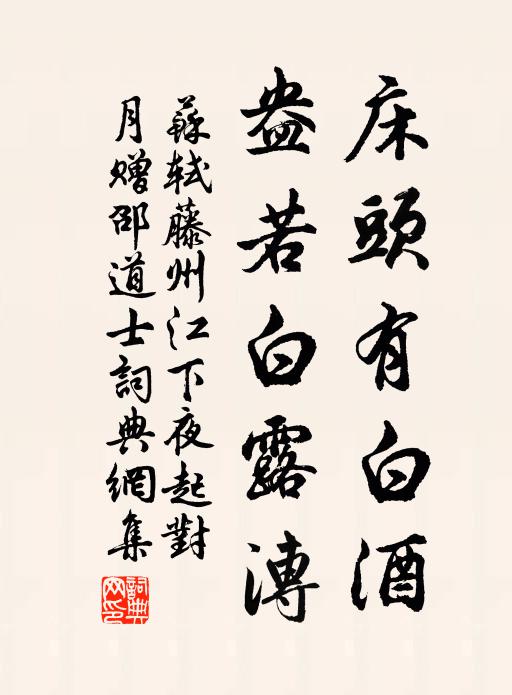 床頭有白酒
盎若白露漙
蘇軾藤州江下夜起對
月贈邵道士詞典網集
詞典網印